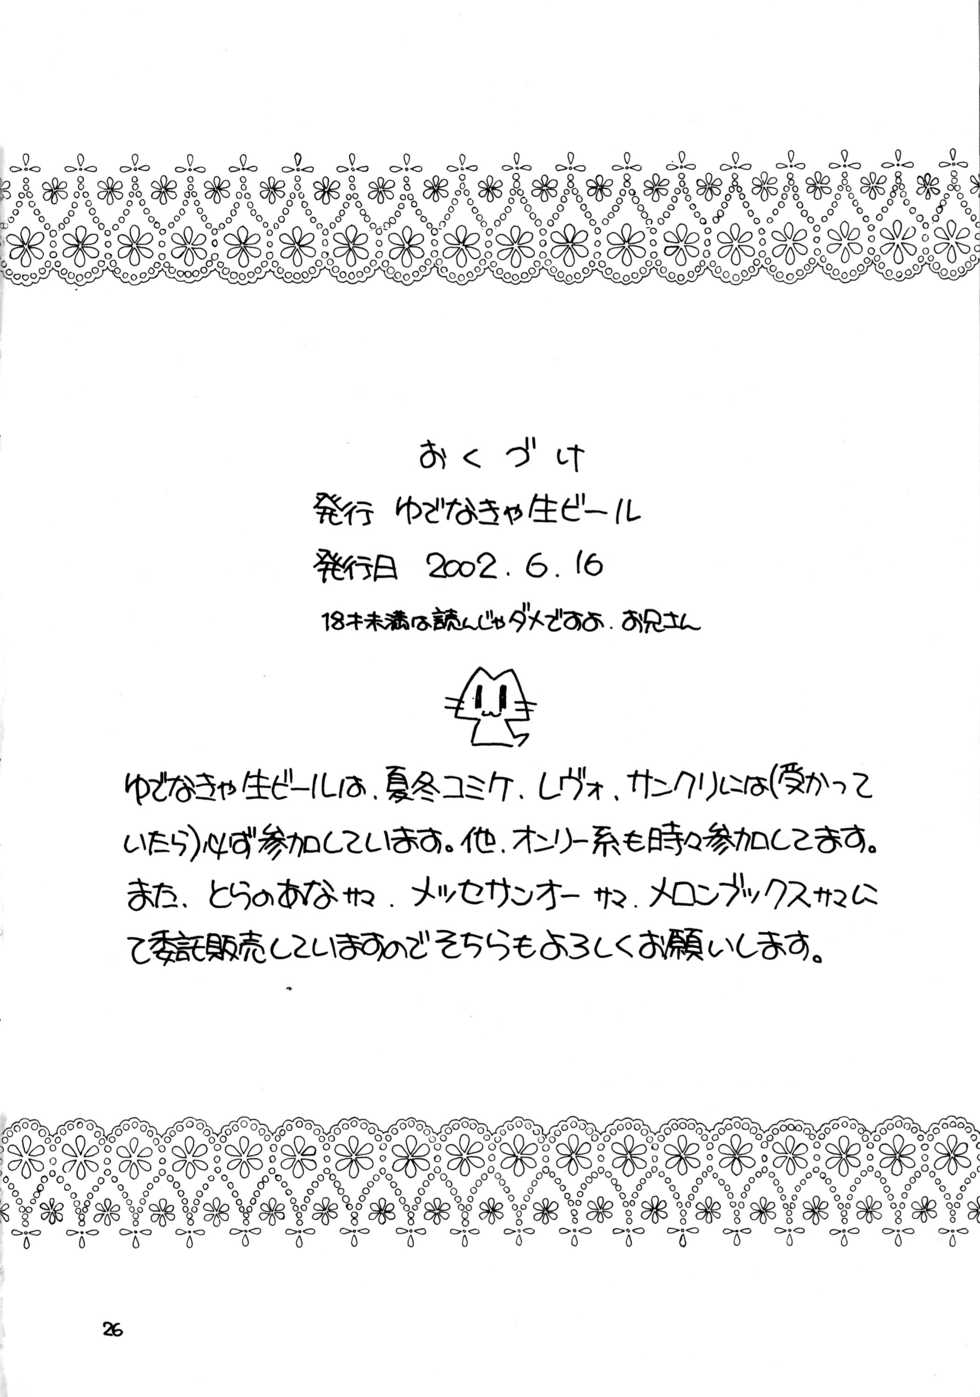 おくづけ
発行 ゆでなきゃ生ビール
発行日 2002.6.16
18才未満は読んじゃダメですよ.お兄さん
ゆでなきゃ生ビールは、夏冬コミケ、レヴォ、サンクリには(受かって
いたら)必ず参加しています。他、オンリー系も時々参加してます。
また、とらのあなサマ、メッセサンオーサマ、メロンブックスサマに
て委託販売していますのでそちらもよろしくお願いします。
26